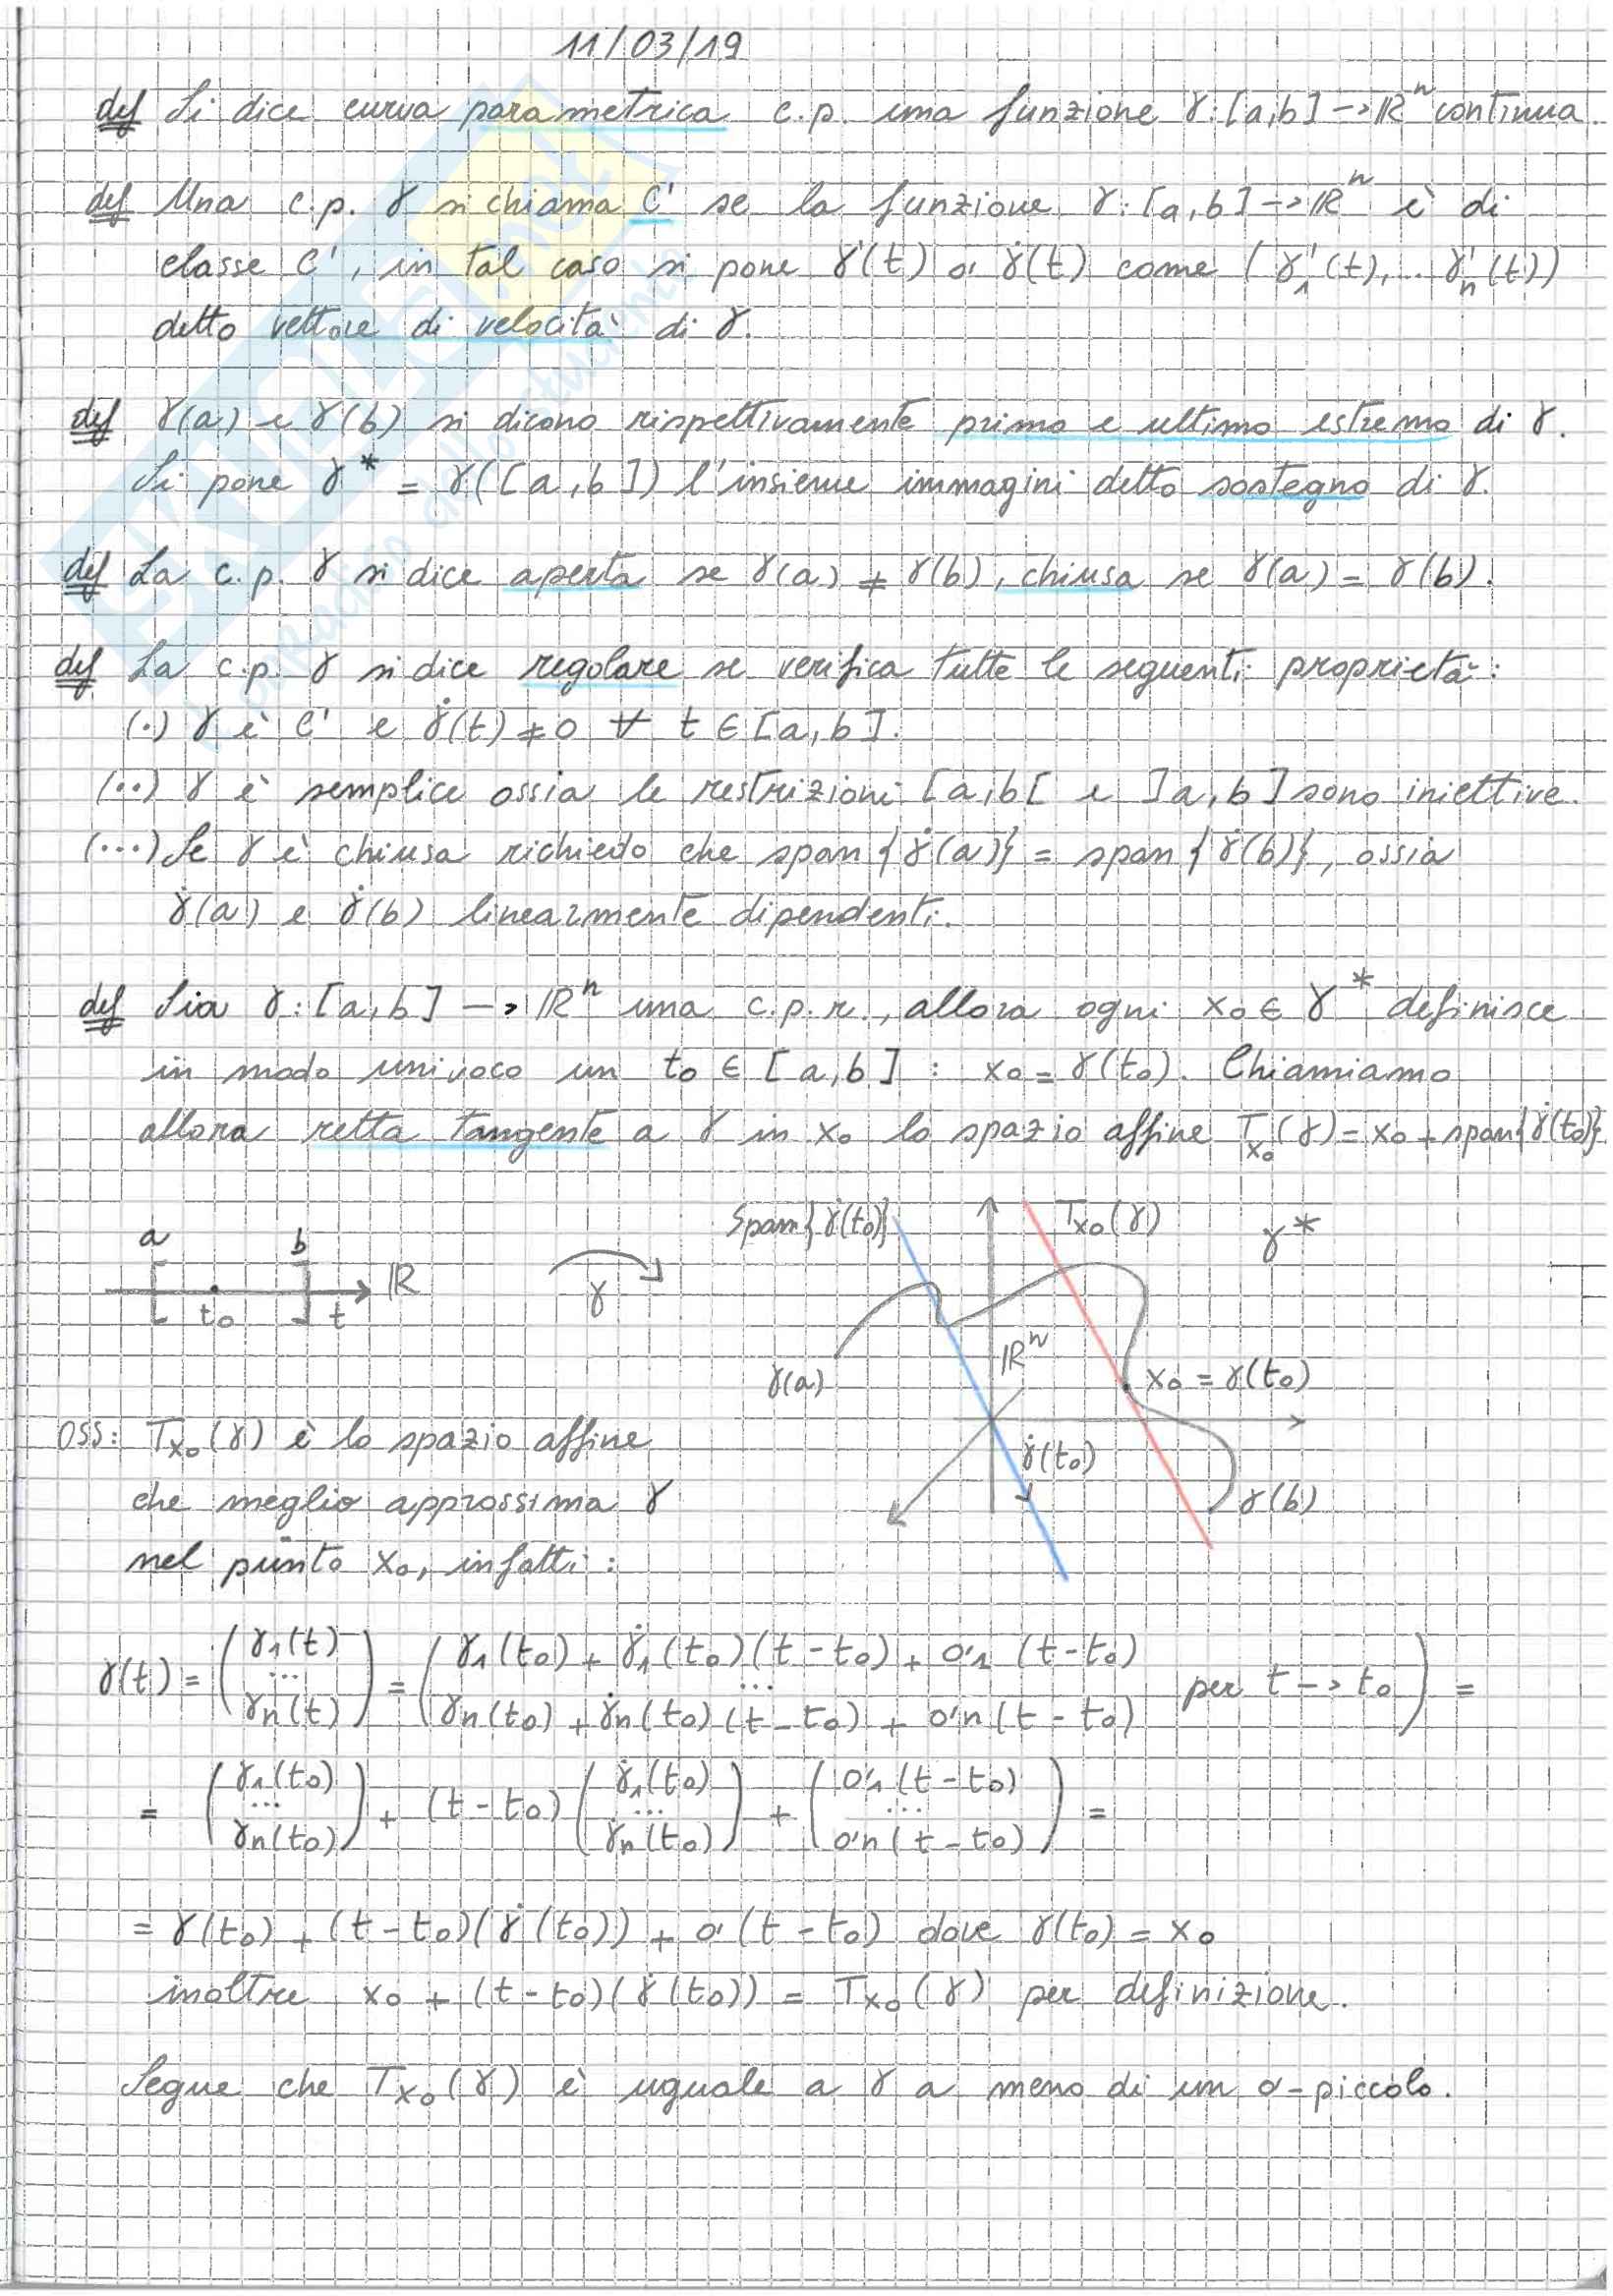 11/03/19
def Si dice curva parametrica c.p. una funzione γ:[a,b]→ℝⁿ continua.
def Una c.p. γ si chiama C¹ se la funzione γ:[a,b]→ℝⁿ è di
classe C¹, in tal caso si pone γ'(t) o γ̇(t) come (γ₁'(t),... γₙ'(t))
detto vettore di velocità di γ.
def γ(a) e γ(b) si dicono rispettivamente primo e ultimo estremo di γ.
Si pone γ* = γ([a,b]) l'insieme immagini detto sostegno di γ.
def La c.p. γ si dice aperta se γ(a) ≠ γ(b), chiusa se γ(a) = γ(b).
def La c.p. γ si dice regolare se verifica tutte le seguenti proprietà:
(.) γ è C¹ e γ̇(t) ≠ 0 ∀ t ∈ [a,b].
(..) γ è semplice ossia le restrizioni [a,b[ e ]a,b] sono iniettive.
(...) Se γ è chiusa richiedo che span{γ̇(a)} = span{γ̇(b)}, ossia
γ̇(a) e γ̇(b) linearmente dipendenti.
def Sia γ:[a,b] → ℝⁿ una c.p.r., allora ogni x₀ ∈ γ* definisce
in modo univoco un t₀ ∈ [a,b] : x₀ = γ(t₀). Chiamiamo
allora retta tangente a γ in x₀ lo spazio affine Tx₀(γ) = x₀ + span{γ̇(t₀)}
Span{γ̇(t₀)} Tx₀(γ) γ*
a b ℝ
t₀ t
γ
ℝⁿ
γ(a) x₀ = γ(t₀)
γ̇(t₀)
γ(b)
OSS: Tx₀(γ) è lo spazio affine
che meglio approssima γ
nel punto x₀, infatti:
γ(t) = (γ₁(t) ... γₙ(t)) = (γ₁(t₀) + γ̇₁(t₀)(t-t₀) + o₁(t-t₀) ... γₙ(t₀) + γ̇ₙ(t₀)(t-t₀) + oₙ(t-t₀) per t → t₀) =
= (γ₁(t₀) ... γₙ(t₀)) + (t-t₀)(γ̇₁(t₀) ... γ̇ₙ(t₀)) + (o₁(t-t₀) ... oₙ(t-t₀)) =
= γ(t₀) + (t-t₀)(γ̇(t₀)) + o(t-t₀) dove γ(t₀) = x₀
inoltre x₀ + (t-t₀)(γ̇(t₀)) = Tx₀(γ) per definizione.
Segue che Tx₀(γ) è uguale a γ a meno di un o-piccolo.